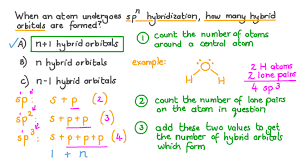 When an atom undergoes spⁿ hybridization, how many hybrid
orbitals are formed?
A) n+1 hybrid orbitals
B) n hybrid orbitals
C) n-1 hybrid orbitals
sp: s + p (2)
sp²: s + p + p (3)
sp³: s + p + p + p (4)
1 + n
① count the number of atoms
around a central atom
example:
H O H
2 H atoms
2 lone pairs
4 sp³
② count the number of lone pairs
on the atom in question
③ add these two values to get
the number of hybrid orbitals
which form